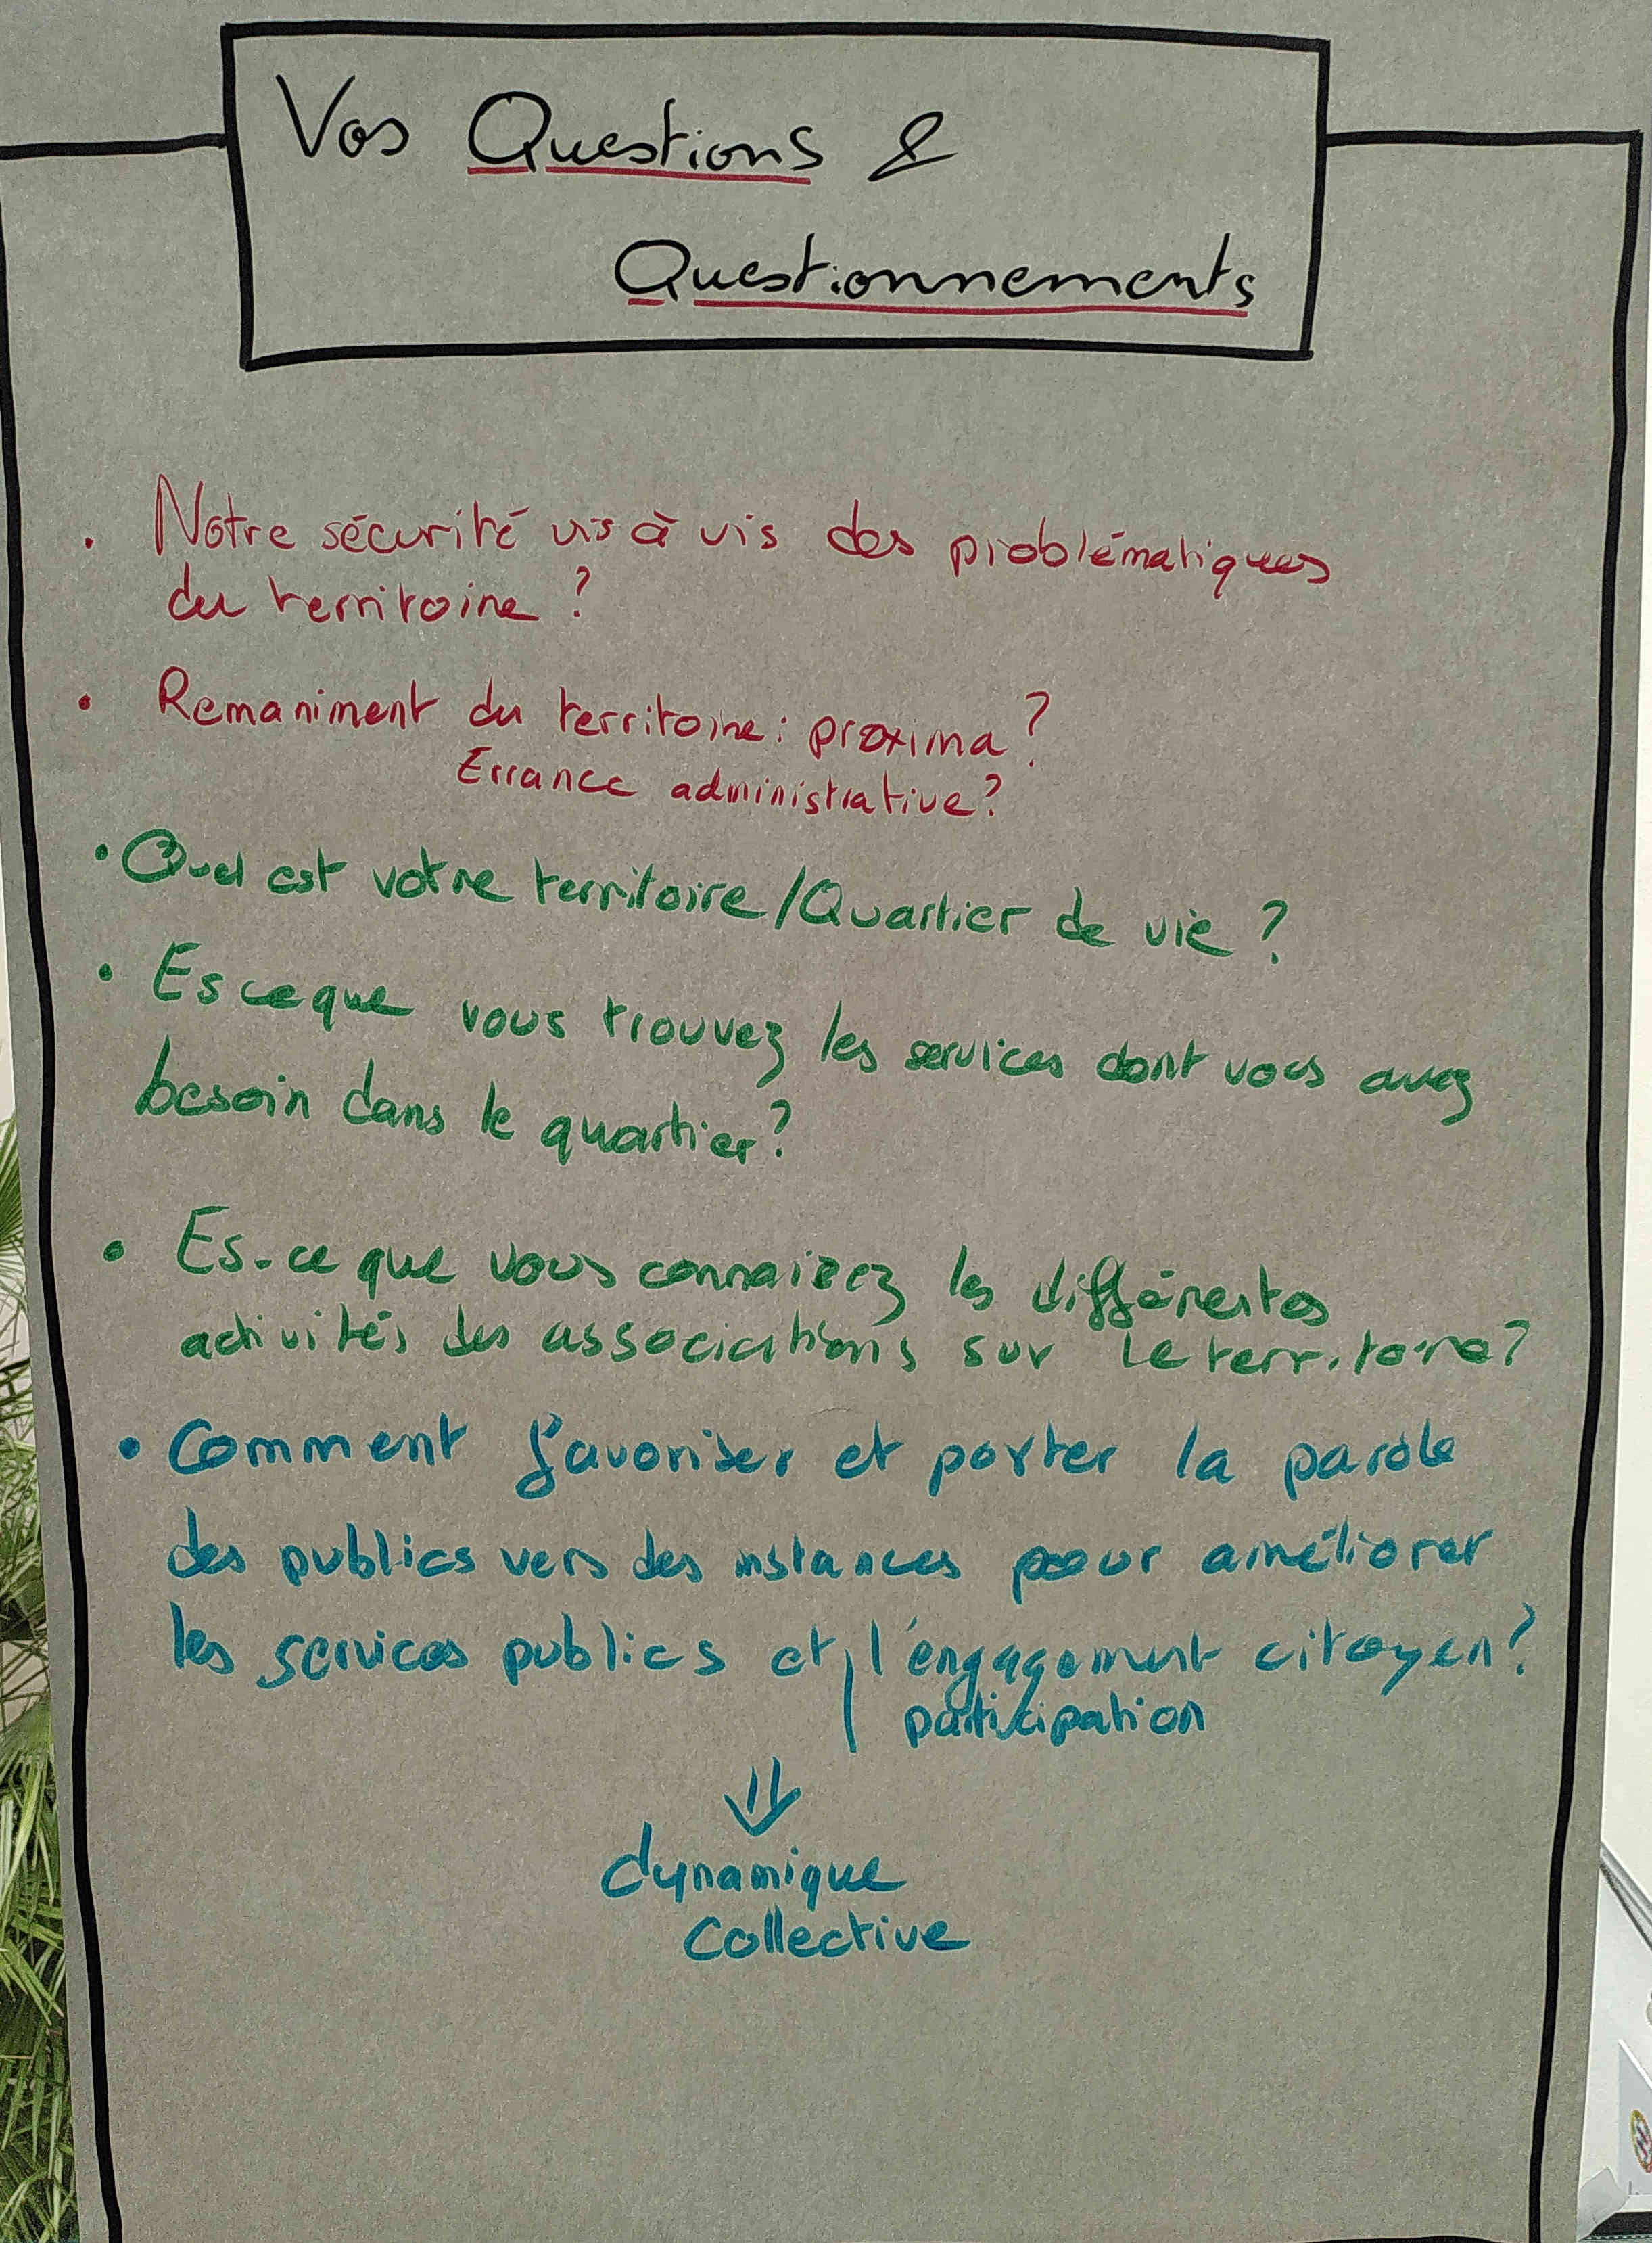 Vos Questions &
Questionnements
. Notre sécurité vis à vis des problématiques
du territoire ?
• Remaniment du territoire : proxima ?
Errance administrative ?
• Quel est votre territoire / Quartier de vie ?
• Es ce que vous trouvez les services dont vous avez
besoin dans le quartier ?
• Es-ce que vous connaisez les différentes
activités des associations sur le territoire ?
• Comment favoriser et porter la parole
des publics vers des instances pour améliorer
les services publics et l'engagement citoyen ?
participation
dynamique
Collective